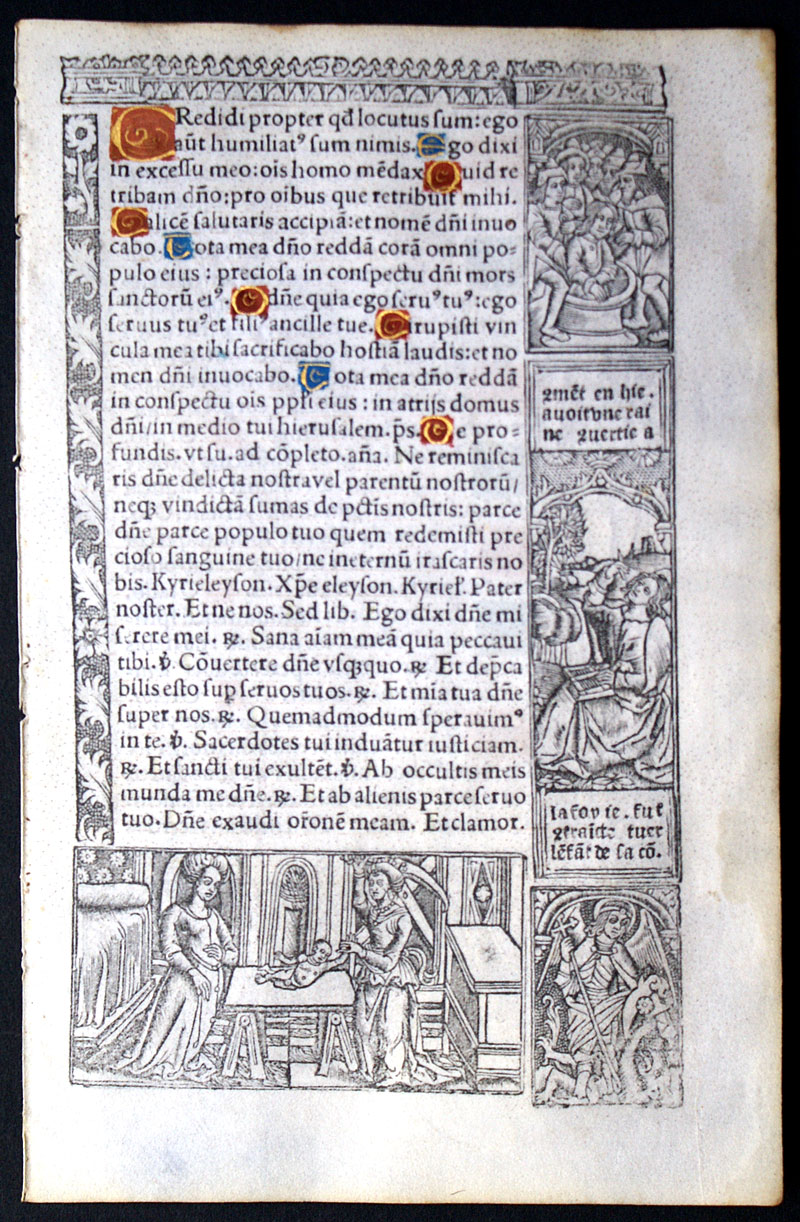 CRedidi propter qd̄ locutus sum: ego
aūt humiliatꝰ sum nimis. Ego dixi
in excessu meo: oīs homo mēdax. Quid re
tribam dño: pro oībus que retribuit mihi.
Calicē salutaris accipiā: et nomē dñi inuo
cabo. Uota mea dño reddā corā omni po⸗
pulo eius : preciosa in conspectu dñi mors
sanctorū eiꝰ. O dñe quia ego seruꝰ tuꝰ: ego
seruus tuꝰ et filiꝰ ancille tue. Dirupisti vin
cula mea tibi sacrificabo hostiā laudis: et no
men dñi inuocabo. Uota mea dño reddā
in conspectu oīs ppłi eius : in atrijs domus
dñi/in medio tui hierusalem. p̄s. De pro⸗
fundis. vt su. ad cōpleto. aña. Ne reminisca
ris dñe delicta nostra vel parentū nostrorū/
neqꝫ vindictā sumas de pctīs nostris: parce
dñe parce populo tuo quem redemisti pre
cioso sanguine tuo/ne in eternū irascaris no
bis. Kyrieleyson. Xp̄e eleyson. Kyrieł. Pater
noster. Et ne nos. Sed lib. Ego dixi dñe mi
serere mei. ℟. Sana aīam meā quia peccaui
tibi. ℣. Cōuertere dñe vsqꝫquo. ℟. Et dep̄ca
bilis esto sup seruos tuos. ℟. Et mīa tua dñe
super nos. ℟. Quemadmodum sperauimꝰ
in te. ℣. Sacerdotes tui induātur iusticiam.
℟. Et sancti tui exultēt. ℣. Ab occultis meis
munda me dñe. ℟. Et ab alienis parce seruo
tuo. Dñe exaudi or̄onē meam. Et clamor.
en hie.
la foy ie.
lēfāt de sa cō.